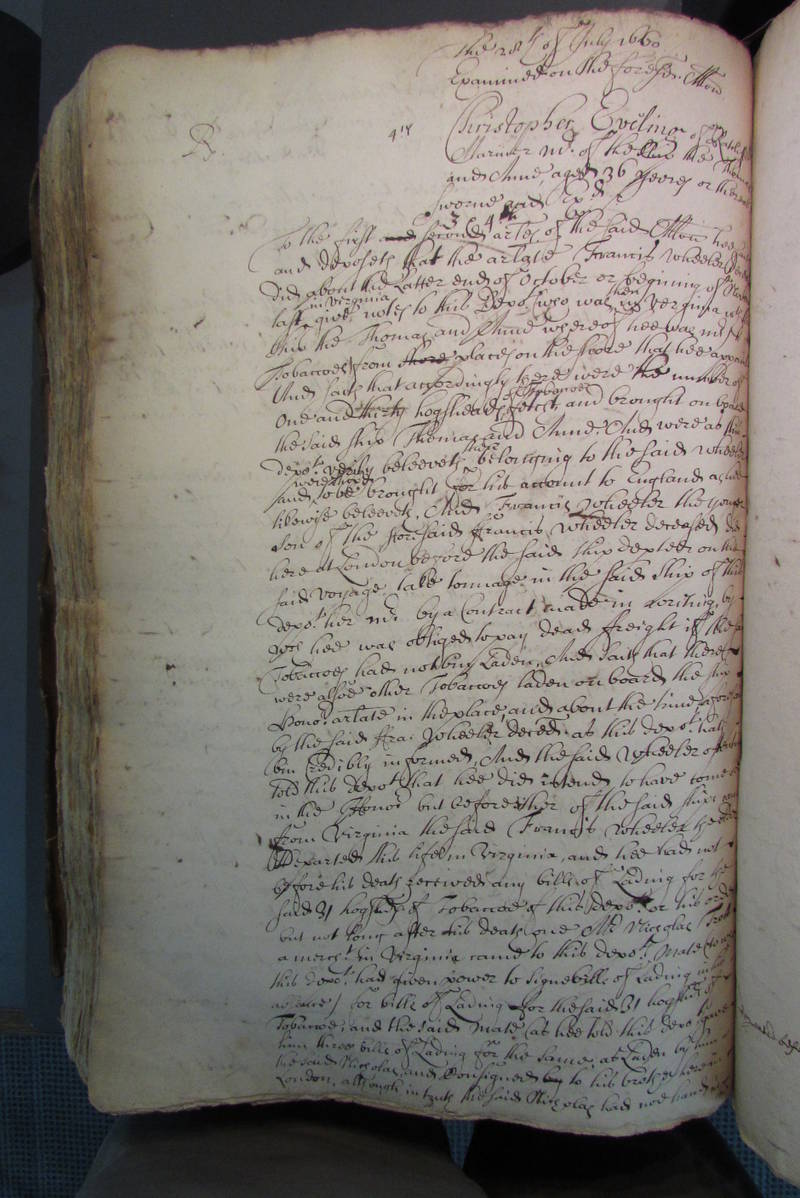 The 28th of July 1660
Examined on the foresd. Allon
R.
4us
Christopher Eveling of
Mariner Mr. of the the
and Anne, aged 36 yeeres or thereabouts
sworne and Exd.
To the first 3 4th artes. of the said Allon hee
and deposeth that the artate Francis Wheeler
did about the latter end of October or beginning of
last in Virginia give notes to this Depot. (who was then in Virginia
ship the Thomas and Anne whereof hee was Mr.
Tobaccoes from places on the shore that hee
And saith that accordingly there were the number of
One and thirty hogsheads of Tobaccoes fetcht and brought on board
the said ship Thomas and Anne, And were as this
depot. verily beleeveth belonging to the said Wheeler
and were to be brought for his account to England as hee
likewise beleeveth, And Francis Wheeler the younger
son of the foresaid Francis Wheeler deceased did
here at London before the said ship depted on the
said voyage take tonnage in the said ship of this
depot. her Mr. by a Contract made in writing, by
wch hee was obliged to pay dead freight if the sd
Tobaccoes had not bin laden, And saith that there
were alsoe other Tobaccoes laden on board the ship
Honor artate in the place, and about the time aforesd
by the said Fra: Wheeler deced. as this depot. hath
bin credibly informed, And the said Wheeler
told this depot. that hee did intend to have come
in the Honor but before of the said ships
from Virginia the said Francis Wheeler the elder
departed this life in Virginia, and hee had not
before his death received any bills of Lading for the
said 31 hogsheds of Tobaccoe of this depot. or his order
but not long after his death one Mr. Nicholas
a mercht. in Virginia came to this depots. Mate (to whom
this depot. had given power to signe bills of Lading in his
absence) for bills of Lading for the said 31 hogsheds of
Tobaccoe, and the said Mate (as hee told this depot. gave
him three bills of Lading for the same, as Laden by him
the said Nicholas, and Consigned to his brother here in
London, although in truth the said Nicholas had noe hand